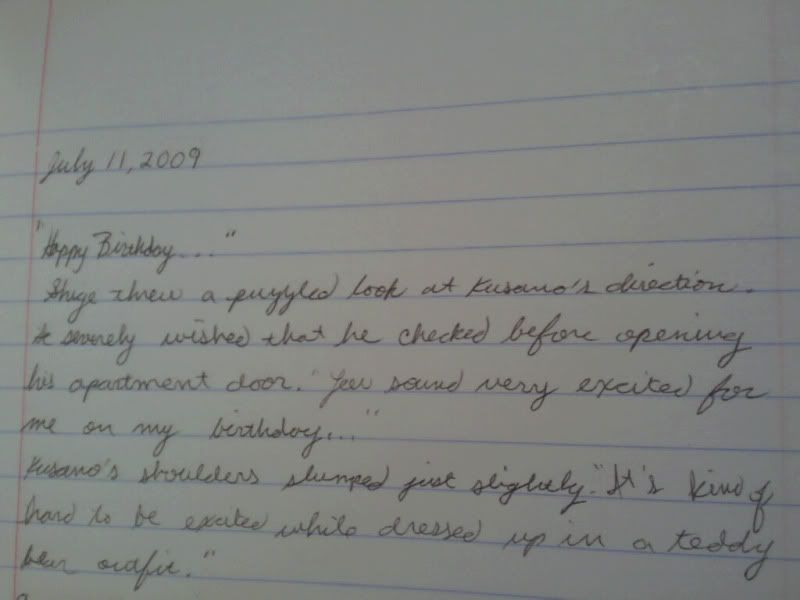 July 11, 2009
"Happy Birthday...."
Shige threw a puzzled look at Kusano's direction.
He severely wished that he checked before opening
his apartment door. "You sound very excited for
me on my birthday..."
Kusano's shoulders slumped just slightly. "It's kind of
hard to be excited while dressed up in a teddy
bear outfit."